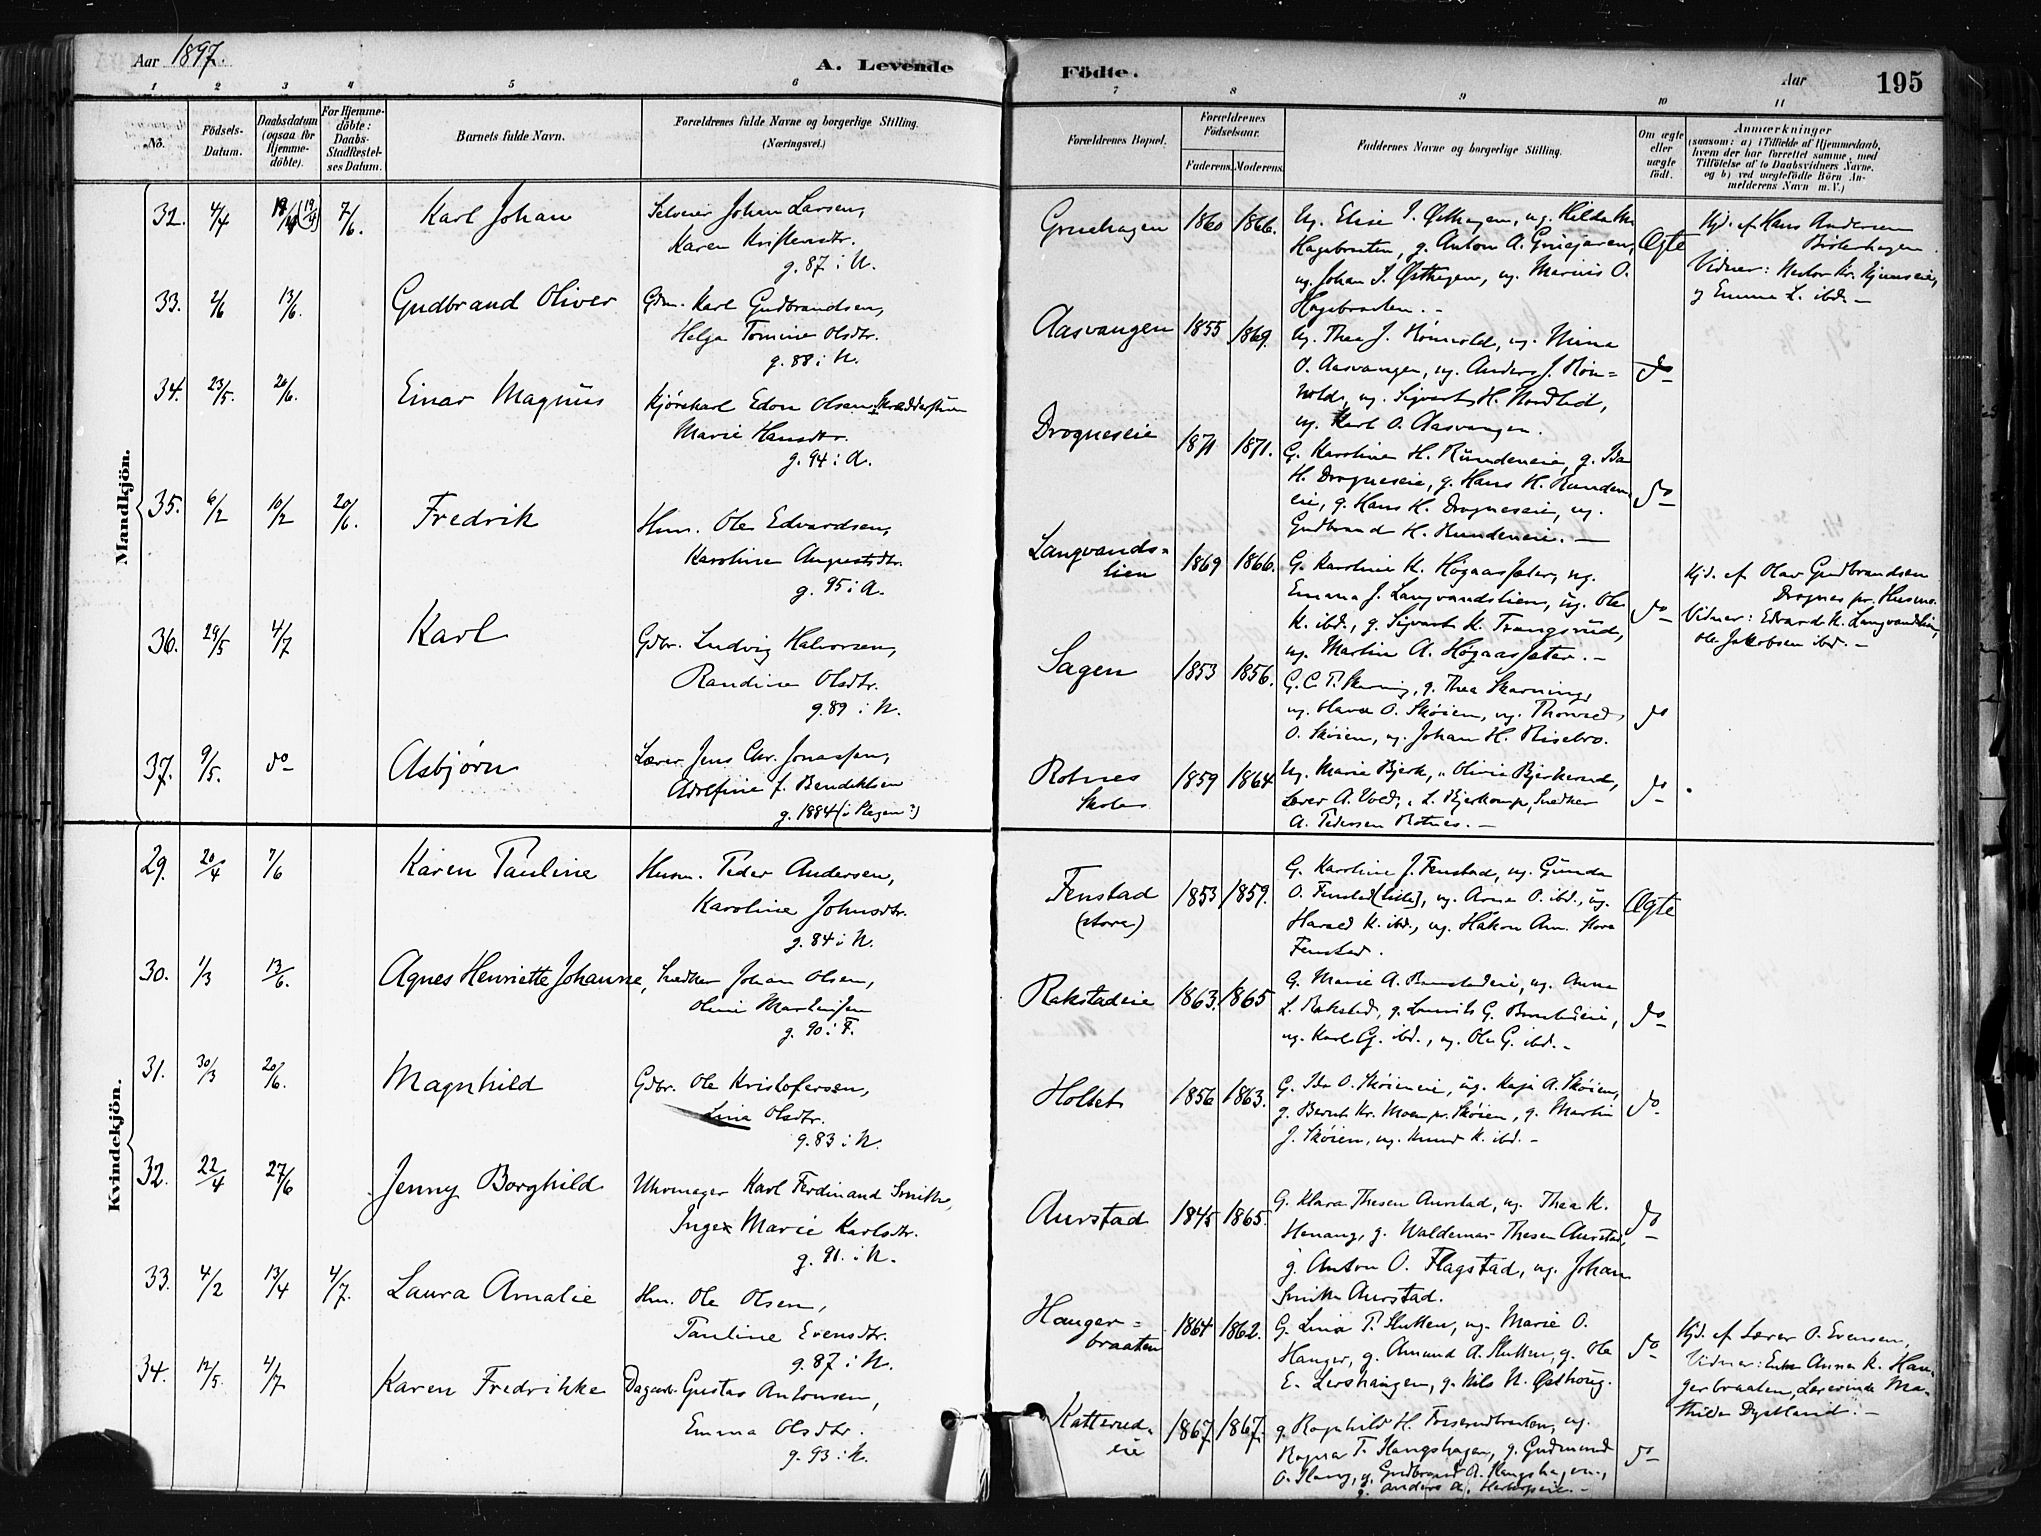 Aar 1897.
A. Levende
Födte.
Aar
195
1 2 3 4 5 6 7 8 9 10 11
No.
Födsels-
Datum.
Daabsdatum
(ogsaa for
Hjemme-
döbte).
For Hjemme-
döbte:
Daabs-
Stadfæstel-
ses Datum.
Barnets fulde Navn.
Forældrenes fulde Navne og borgerlige Stilling.
(Næringsvei.)
Forældrenes Bopæl.
Forældrenes
Födselsaar.
Faderens. Moderens.
Faddernes Navne og borgerlige Stilling.
Om ægte
eller
uægte
födt.
Anmærkninger
(saasom: a) i Tilfælde af Hjemmedaab,
hvem der har forrettet samme, med
Tilföielse af to Daabsvidners Navne.
og b) ved uægtefödte Börn An-
melderens Navn m. V.)
Mandkjön.
32. 4/4 (19/4) 7/6. Karl Johan
Selveier Johan Larsen,
Karen Kristensdtr.
g. 87 i N.
Gruehagen 1860 1866.
Ug. Elise J. Østhagen, ug. Hilda M.
Hagebraaten, g. Anton A. Gruejaren,
ug. Johan J. Østhagen, ug. Marius O.
Hagebraaten. -
Ægte
Hjd. af Hans Andersen
Vidner: Nestor Kr. Hjemseie,
og Emma L. ibd. -
33. 2/6 13/6. Gudbrand Oliver
Gdm. Karl Gudbrandsen,
Helga Tomine Olsdtr.
g. 88 i N.
Aasvangen 1855 1869.
Ug. Thea J. Rønvold, ug. Mina
O. Aasvangen, ug. Anders J. Røn=
vold, ug. Sigvart H. Nordlid,
ug. Karl O. Aasvangen.
do
34. 23/5. 20/6. Einar Magnus
Kjørekarl Edon Olsen
Marie Hansdtr.
g. 94 i A.
Drogneseie 1871 1871.
G. Karoline H. Rundeneie, g. Ida
H. Drogneseie, g. Hans H. Runden-
eie, g. Hans K. Drogneseie, ug.
Gudbrand H. Rundeneie. -
do
35. 6/2 10/2 20/6. Fredrik
Hm. Ole Edvardsen,
Karoline Augustsdtr.
g. 95 i A.
Langvands=
lien 1869 1866.
G. Karoline K. Høgaassæter, ug.
Emma J. Langvandslien, ug. Ole
K. ibd., g. Sigvart K. Trangsrud,
ug. Martin A. Høgaassæter. -
do
Hjd. af Olav Gudbrandsen
Drognes pr. Husmo.
Vidner: Edvard K. Langvandslien,
Ole Jakobsen ibd. -
36. 29/5 4/7 Karl
Gdbr. Ludvig Halvorsen,
Randine Olsdtr.
g. 89 i N.
Sagen 1853 1856.
G. C. P. Skarning, g. Thea Skarning,
ug. Olava O. Skøien, ug. Thorvald
O. Skøien, ug. Johan H. Risebro.
do
37. 9/5. do Asbjørn
Lærer Jens Chr. Jonassen,
Adolfine f. Bendiktsen
g. 1884 (i Skogn?)
Rotnes
Skole 1859 1864
Ug. Marie Bjerk, " Olivia Bjerkerud,
Lærer A. Vold, " L. Bjerkomp, Snedker
A. Pedersen Rotnes. -
do
Kvindekjön.
29. 20/4 7/6 Karen Pauline
Husm. Peder Andersen,
Karoline Johnsdtr.
g. 84 i N.
Fenstad
(store) 1853 1859.
G. Karoline J. Fenstad, ug. Gunda
O. Fenstad (lille), ug. Arne O. ibd., ug.
Harald K. ibd., ug. Håkon Am. store
Fenstad.
Ægte
30. 1/3 13/6. Agnes Henriette Johanne,
Snedker Johan Olsen,
Oline Martinsen
g. 90 i F.
Rakstadeie 1863. 1865
G. Marie A. Bamstadeie, ug. Anna
L. Rakstad, g. Laurits G. Bamstadeie,
ug. Karl G. ibd., ug. Ole G. ibd. -
do
31. 30/3 20/6. Magnhild
Gdbr. Ole Kristofersen,
Lina Olsdtr.
g. 83 i N.
Holtet 1856 1863.
G. Ida O. Skøieneie, ug. Kaja A. Skøien,
g. Bernt Kr. Moen pr. Skøien, g. Martin
J. Skøien, ug. Knud K. ibd. -
do
32. 22/4 27/6 Jenny Borghild
Uhrmager Karl Ferdinand Smith,
Inger Marie Karlsdtr.
g. 91. i N.
Aurstad 1845 1865.
G. Klara Thesen Aurstad, ug. Thea K.
Henaug, g. Waldemar Thesen Aurstad,
g. Anton O. Flagstad, ug. Johan
Smith Aurstad.
do
33. 4/2 13/4 4/7. Laura Amalie
Hm. Ole Olsen,
Pauline Evensdtr.
g. 87 i N.
Hanger=
braaten 1864 1862.
G. Lina P. Slutten, ug. Marie O.
Hanger, g. Amund A. Slutten, g. Ole
E. Lershaugen, g. Nils N. Østhoug.
do
Hjd. af Lærer O. Evensen,
Vidner: Enke Anne K. Han-
gerbraaten, Lærerinde Ma-
thilde Dystland. -
34. 12/5. 4/7 Karen Fredrikke
Dagarb. Gustav Antonsen,
Emma Olsdtr.
g. 93 i N.
Katterud-
eie 1867 1867.
g. Ragnhild H. Fossumbraaten, ug.
Ragna T. Haugshagen, g. Gudmund
O. Haug, g. Gudbrand A. Haugshagen,
g. Anders A. Herbergseie. -
do